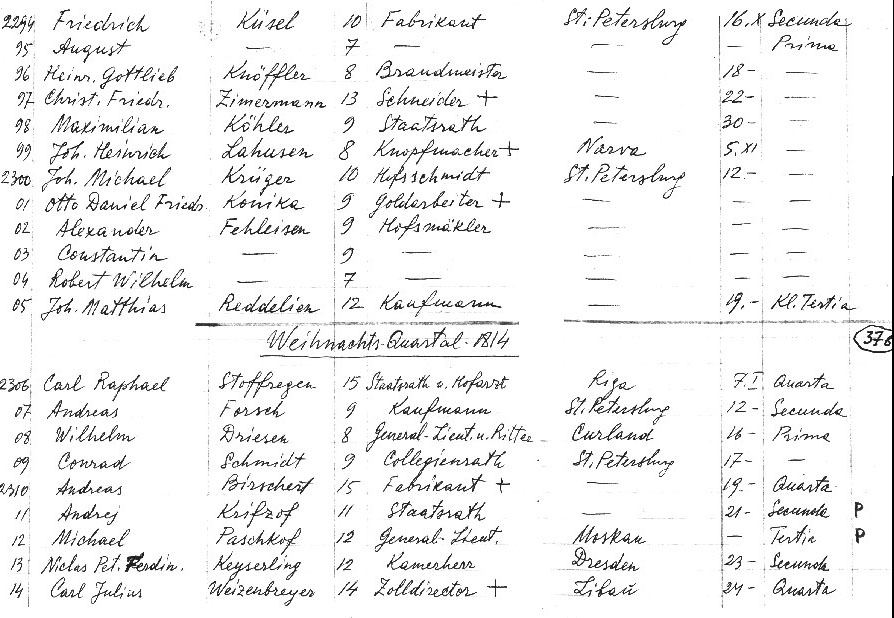 2294 Friedrich Küsel 10 Fabrikant St. Petersburg 16. X Secunda
95 August — 7 — — — Prima
96 Heinr. Gottlieb Knöffler 8 Brandmeister — 18 - —
97 Christ. Friedr. Zimermann 13 Schneider + — 22 - —
98 Maximilian Köhler 9 Staatsrath — 30 - —
99 Joh. Heinrich Lahusen 8 Knopfmacher + Narva 5. XI —
2300 Joh. Michael Krüger 10 Hufsschmidt St. Petersburg 12. - —
01 Otto Daniel Friedr. Konika 9 Goldarbeiter + — — —
02 Alexander Fehleisen 9 Hofsmäkler — — —
03 Constantin — 9 — — — —
04 Robert Wilhelm — 7 — — — —
05 Joh. Matthias Reddelien 12 Kaufmann — 19. - Kl. Tertia
Weihnachts-Quartal-1814 376
2306 Carl Raphael Stoffregen 15 Staatsrath u. Hofarzt Riga 7. I Quarta
07 Andreas Forsch 9 Kaufmann St. Petersburg 12 - Secunda
08 Wilhelm Driesen 8 General-Lieut. u. Ritter Curland 16 - Prima
09 Conrad Schmidt 9 Collegienrath St. Petersburg 17 - —
2310 Andreas Birschert 15 Fabrikant + — 19. - Quarta
11 Andrej Krifzof 11 Staatsrath — 21 - Secunda P
12 Michael Paschkof 12 General-Lieut. Moskau — Tertia P
13 Niclas Pet. Ferdin. Keyserling 12 Kamerherr Dresden 23 - Secunda
14 Carl Julius Weizenbreyer 14 Zolldirector + Libau 24 - Quarta